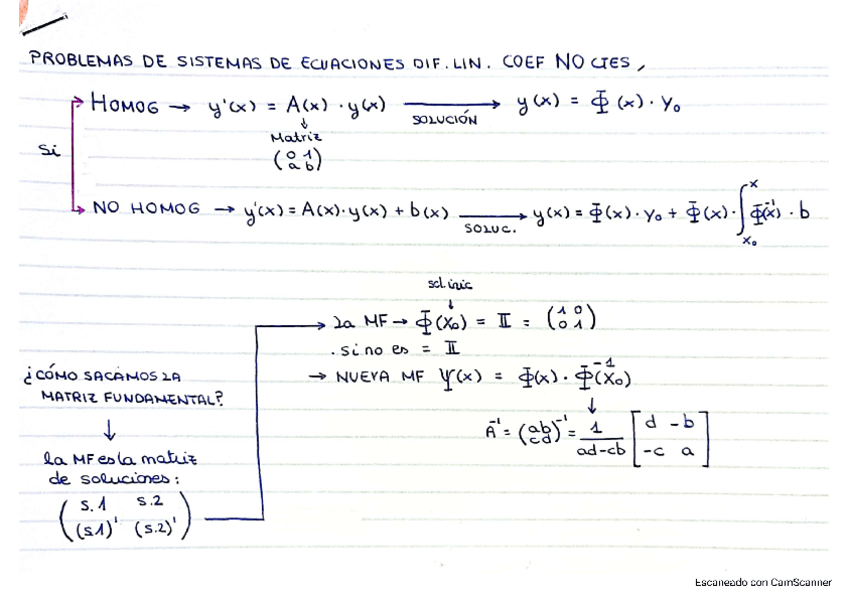 PROBLEMAS DE SISTEMAS DE ECUACIONES DIF. LIN. COEF NO CTES,
HOMOG → y'(x) = A(x) · y(x) SOLUCIÓN → y(x) = Φ(x) · Y₀
↓
Matriz
(0 1
a b)
Si
NO HOMOG → y'(x) = A(x)·y(x) + b(x) SOLUC. → y(x) = Φ(x)·Y₀ + Φ(x)·∫ₓ₀ˣ Φ⁻¹(x) · b
sol. inic
↓
La MF → Φ(X₀) = II = (1 0
0 1)
. si no es = II
→ NUEVA MF Ψ(x) = Φ(x) · Φ⁻¹(X₀)
↓
A⁻¹ = (a b
c d)⁻¹ = 1/(ad-cb) [d -b
-c a]
¿CÓMO SACAMOS LA
MATRIZ FUNDAMENTAL?
↓
la MF es la matriz
de soluciones:
(s.1 s.2
(s.1)' (s.2)')
Escaneado con CamScanner